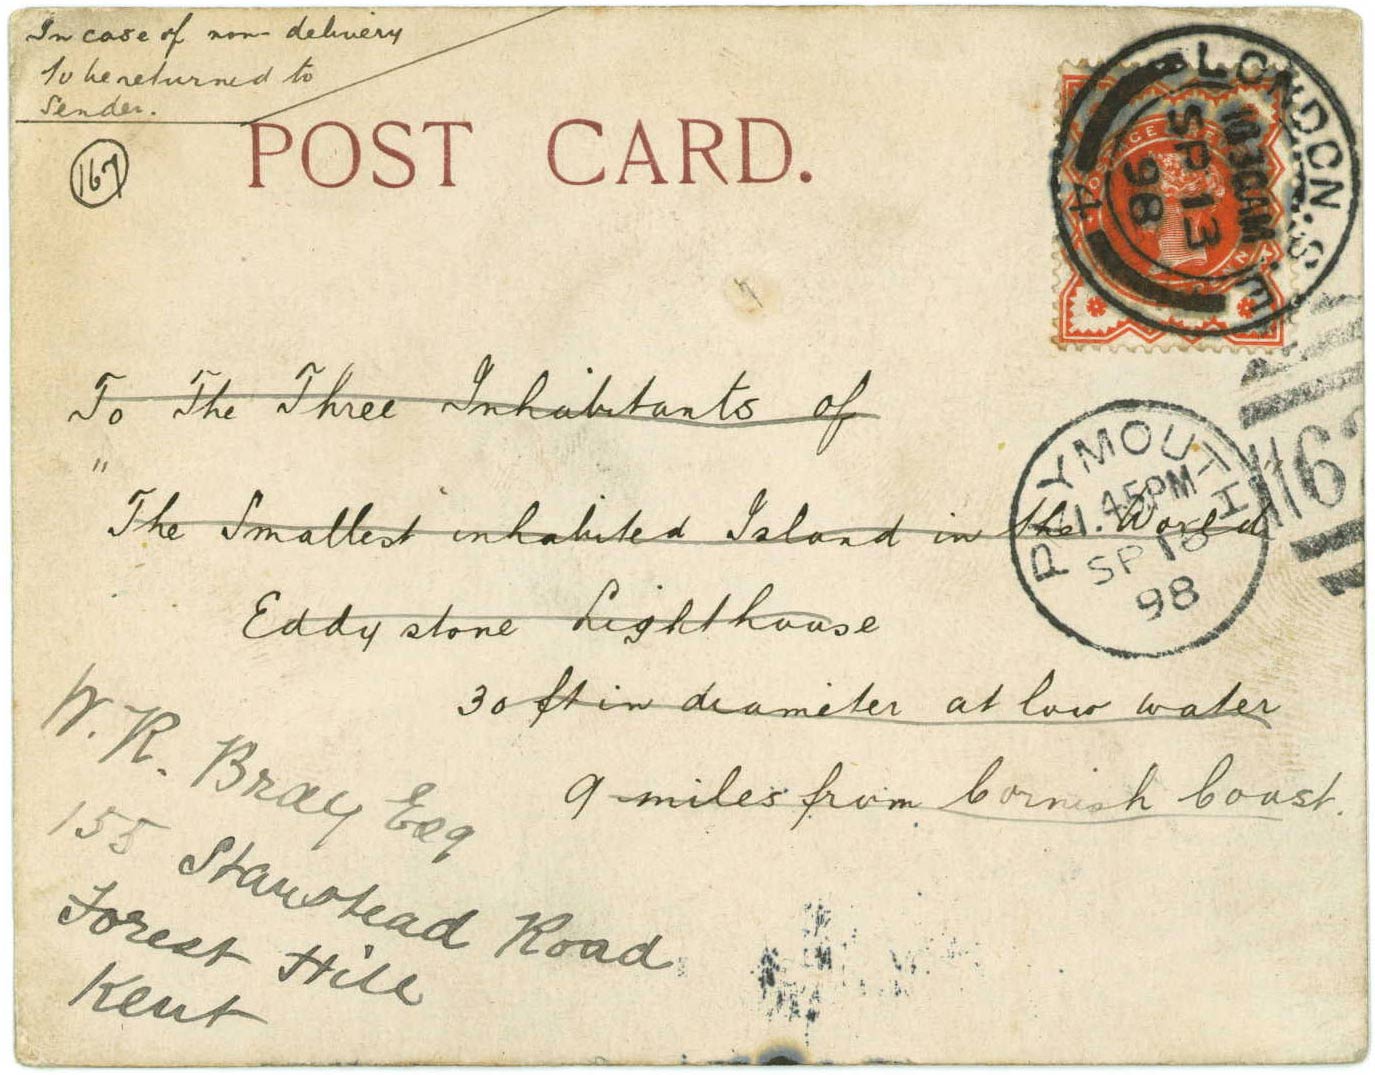 In case of non-delivery
to be returned to
Sender.
167
POST CARD.
LONDON. S.E
10.30AM
SP 13
98
4
To The Three Inhabitants of
"
The Smallest inhabited Island in the World
Eddystone Lighthouse
30 ft in diameter at low water
9 miles from Cornish Coast.
PLYMOUTH
1.45PM
SP 18
98
62
W. R. Bray Esq
155 Stanstead Road
Forest Hill
Kent